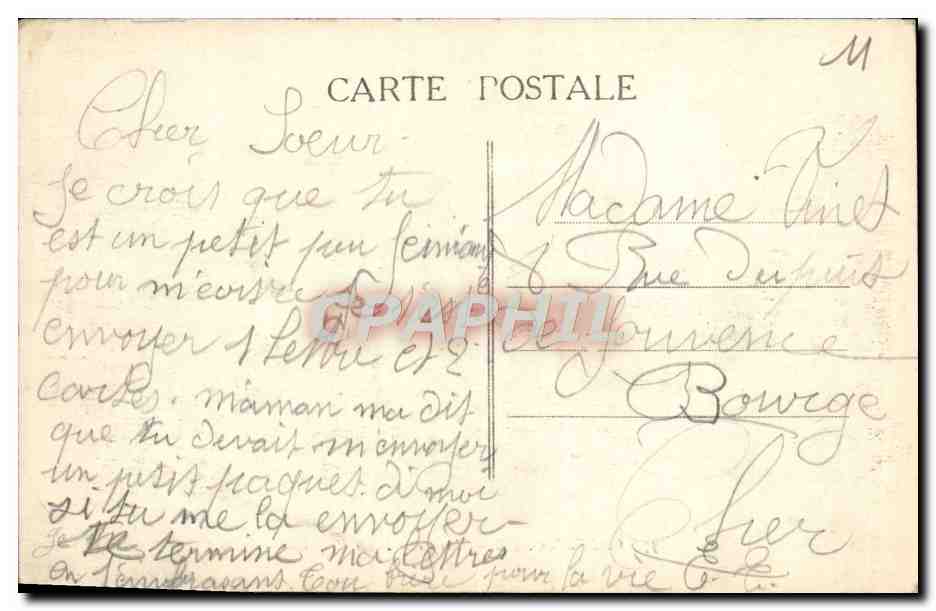 11
CARTE POSTALE
Cher Soeur
Je crois que tu
est un petit peu feiniant
pour m'ecrire Je t'est
envoyer 1 Lettre et 2
cartes. maman ma dit
que tu devait m'envoyer
un petit paquet. di moi
si tu me la envoyer
Je te termine ma Lettres
en t'embrasant. Ton pour la vie
Madame Vinet
8 Rue Du puits
de Jouvence
Bourge
Cher
CPAPHIL